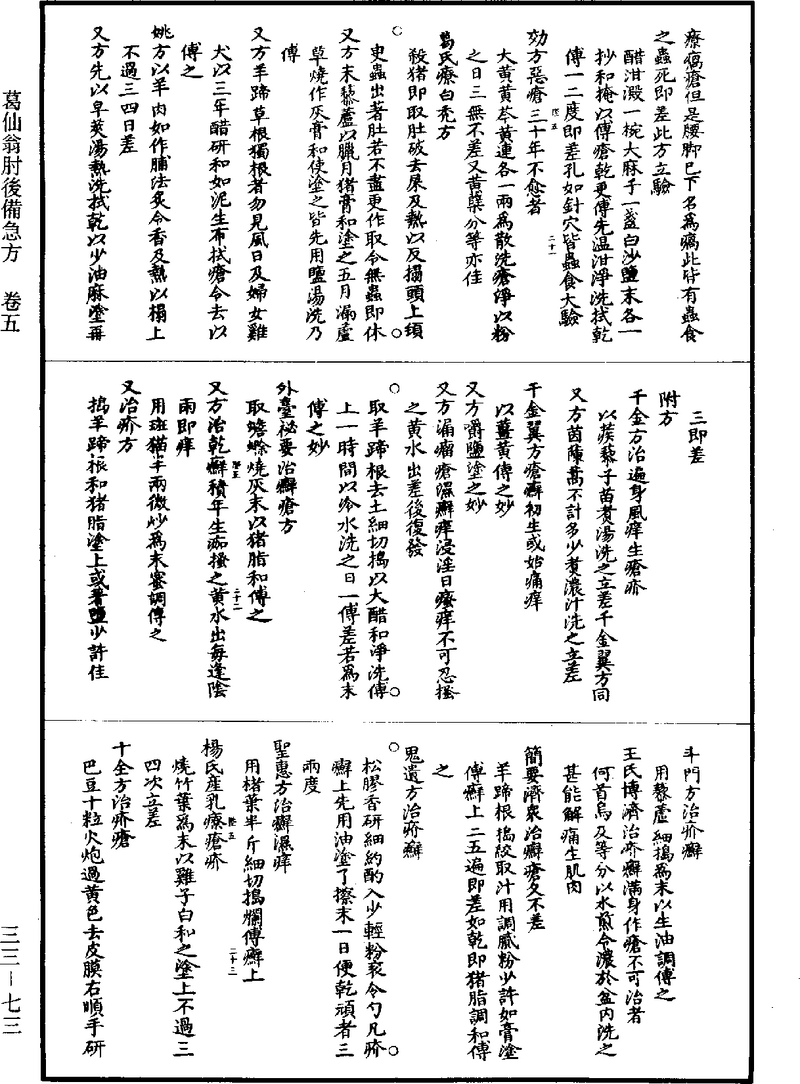 療瘑瘡但是腰脚巳下名為瘑此皆有蟲食
之蟲死即差此方立驗
醋泔澱一椀大麻子一盞白沙鹽末各一
抄和掩以傅瘡乾更傅先温泔淨洗拭乾
傅一二度即差孔如針穴皆蟲食大驗
効方惡瘡三十年不愈者
大黃黃芩黃連各一兩為散洗瘡淨以粉
之日三無不差又黃蘗分等亦佳
葛氏療白禿方
殺猪即取肚破去屎及熱以反搨頭上須
臾蟲出著肚若不盡更作取令無蟲即休
又方末藜蘆以臘月猪膏和塗之五月漏盧
草燒作灰膏和使塗之皆先用鹽湯洗乃
傅
又方羊蹄草根獨根者勿見風日及婦女雞
犬以三年醋研和如泥生布拭瘡令去以
傅之
姚方以羊肉如作脯法炙令香及熱以榻上
不過三四日差
又方先以皁莢湯熱洗拭乾以少油麻塗再
三即差
附方
千金方治遍身風痒生瘡疥
以蒺藜子苗煮湯洗之立差千金翼方同
又方茵陳蒿不計多少煮濃汁洗之立差
千金翼方瘡癬初生或始痛痒
以薑黃傅之妙
又方嚼鹽塗之妙
又方漏瘤瘡濕癬痒浸淫日瘙痒不可忍搔
之黃水出差後復發
取羊蹄根去土細切搗以大醋和淨洗傅
上一時間以冷水洗之日一傅差若為末
傅之妙
外臺祕要治癬瘡方
取蟾蜍燒灰末以猪脂和傅之
又方治乾癬積年生痂搔之黃水出每逢陰
雨即痒
用斑猫半兩微炒為末蜜調傅之
又治疥方
搗羊蹄根和猪脂塗上或著鹽少許佳
斗門方治疥癬
用藜蘆細搗為末以生油調傅之
王氏博濟治疥癬滿身作瘡不可治者
何首烏及等分以水煎令濃於盆內洗之
甚能解痛生肌肉
簡要濟衆治癬瘡久不差
羊蹄根搗絞取汁用調膩粉少許如膏塗
傅癬上三五遍即差如乾即猪脂調和傅
之
鬼遺方治疥癬
松膠香研細約酌入少輕粉衮令勻凡疥
癬上先用油塗了擦末一日便乾頑者三
兩度
聖惠方治癬濕痒
用楮葉半斤細切搗爛傅癬上
楊氏產乳療瘡疥
燒竹葉為末以雞子白和之塗上不過三
四次立差
十全方治疥瘡
巴豆十粒火炮過黃色去皮膜右順手研
葛仙翁肘後備急方　卷五
三三－七三